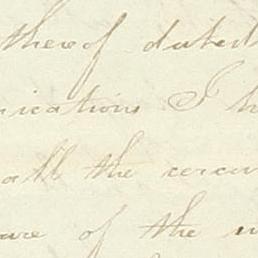 thereof dated
nications I h
all the circum
are of the